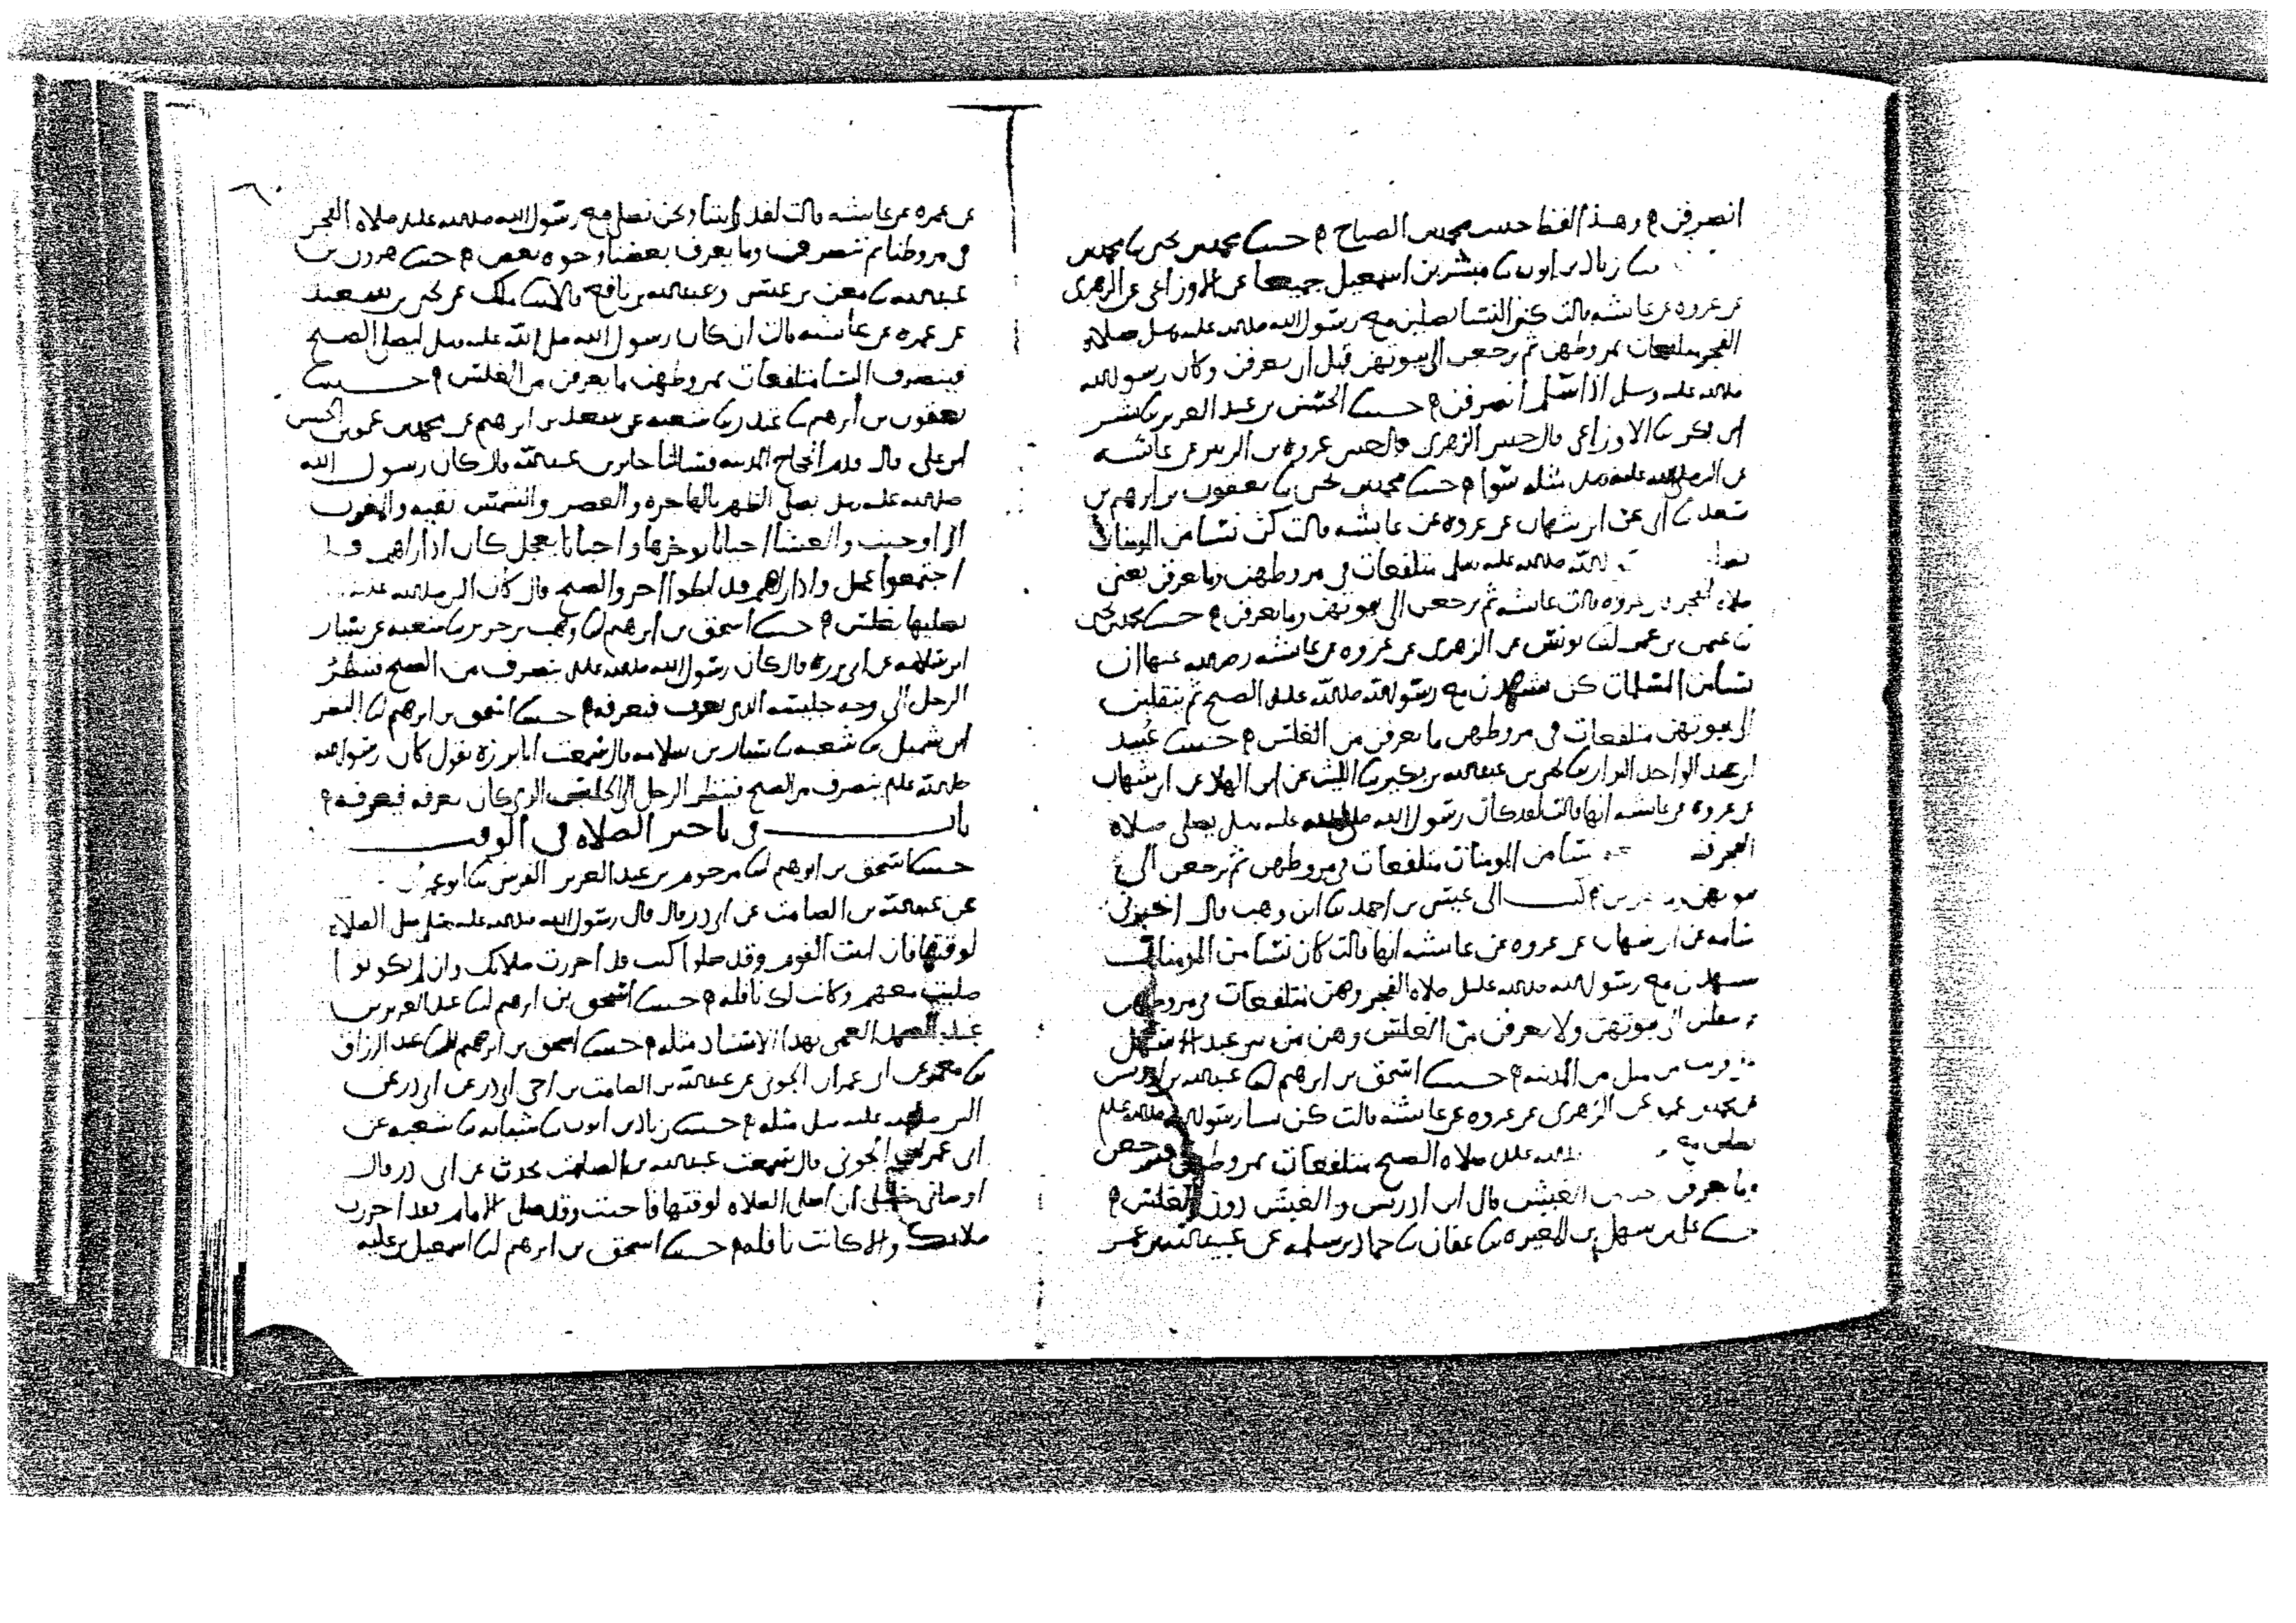 انصرفن وهذا لفظ حديث محمد بن الصباح حدثنا محمد بن يحيى ثنا محمد بن
ثنا زياد بن ايوب ثنا مبشر بن اسمعيل جميعا عن الاوزاعي عن الزهري
عن عروة عن عائشه قالت كن النسا يصلين مع رسول الله صلى الله عليه وسلم صلاة
الفجر متلفعات بمروطهن ثم يرجعن الى بيوتهن قبل ان يعرفن وكان رسول الله
صلى الله عليه وسلم اذا سلم انصرفن حدثنا الحسن بن عبد العزيز ثنا بشر
ابن بكر ثنا الاوزاعي قال حدثني الزهري قال حدثني عروة بن الزبير عن عائشه
عن النبي صلى الله عليه وسلم مثله سوا حدثنا محمد بن يحيى ثنا يعقوب بن ابرهيم بن
سعد ثنا ابي عن ابن شهاب عن عروة عن عائشه قالت كن نسا من المومنات
الله صلى الله عليه وسلم متلفعات في مروطهن وما يعرفن يعني
صلاة الفجر قالت عائشه ثم يرجعن الى بيوتهن وما يعرفن حدثنا محمد بن يحيى
ثنا عثمن بن عمر انا يونس عن الزهري عن عروة عن عائشه رضي الله عنها ان
نسا من المسلمات كن يشهدن مع رسول الله صلى الله عليه الصبح ثم ينقلبن
الى بيوتهن متلفعات في مروطهن ما يعرفن من الغلس حدثنا عبيد
ابن عبد الواحد البزار ثنا يحيى بن عبد الله بن بكير ثنا الليث عن ابن الهاد عن ابن شهاب
عن عروة عن عائشه انها قالت لقد كان رسول الله صلى الله عليه وسلم يصلي صلاة
الفجر نسا من المومنات متلفعات في مروطهن ثم يرجعن الى
بيوتهن كتب الي عيسى بن احمد ثنا ابن وهب قال اخبرني
اسامه عن ابن شهاب عن عروة عن عائشه انها قالت كان نسا من المومنات
يشهدن مع رسول الله صلى الله عليه صلاة الفجر وهن متلفعات في مروطهن
ثم ينقلبن الى بيوتهن ولا يعرفن من الغلس وهن من بني عبد الاشهل
قريب من ميل من المدينه حدثنا اسحق بن ابرهيم انا عبد الله بن ادريس
عن محمد بن عمرو عن الزهري عن عروة عن عائشه قالت كن نسا رسول الله صلى الله عليه
يصلين مع صلاة الصبح متلفعات بمروطهن
وما يعرفن من الغبش قال ابن ادريس والغبش دون الغلس
حدثنا علي بن سهل بن المغيره ثنا عفان ثنا حماد بن سلمه عن عبيد الله بن عمر
عن عمره عن عائشه قالت لقد رايتنا ونحن نصلي مع رسول الله صلى الله عليه صلاة الفجر
في مروطنا ثم ننصرف وما يعرف بعضنا وجوه بعض حدثنا هرون بن
عبد الله ثنا معن بن عيسى وعبد الله بن نافع قالا ثنا ملك عن يحيى بن سعيد
عن عمره عن عائشه قالت ان كان رسول الله صلى الله عليه وسلم ليصلي الصبح
فينصرف النسا متلفعات بمروطهن ما يعرفن من الغلس حدثنا
يعقوب بن ابرهيم ثنا غندر ثنا شعبه عن سعد بن ابرهيم عن محمد بن عمرو بن الحسن
ابن علي قال قدم الحجاج المدينه فسالنا جابر بن عبد الله قال كان رسول الله
صلى الله عليه وسلم يصلي الظهر بالهاجره والعصر والشمس نقيه والمغرب
اذا وجبت والعشا احيانا يوخرها واحيانا يعجل كان اذا راهم قد
اجتمعوا عجل واذا راهم قد ابطوا اخر والصبح قال كان النبي صلى الله عليه
يصليها بغلس حدثنا اسحق بن ابرهيم انا وهب بن جرير ثنا شعبه عن سيار
ابن سلامه عن ابي برزه قال كان رسول الله صلى الله عليه ينصرف من الصبح فينظر
الرجل الى وجه جليسه الذي يعرف فيعرفه حدثنا اسحق بن ابرهيم انا النضر
ابن شميل ثنا شعبه ثنا سيار بن سلامه قال سمعت ابا برزه يقول كان رسول الله
صلى الله عليه ينصرف من الصبح فينظر الرجل الى الجليس الذي كان يعرفه فيعرفه
باب في تاخير الصلاة في الوقت
حدثنا اسحق بن ابرهيم انا مرحوم بن عبد العزيز القرشي ثنا ابو عمران
عن عبد الله بن الصامت عن ابي ذر قال قال رسول الله صلى الله عليه وسلم صل الصلاة
لوقتها فان اتيت القوم وقد صلوا كنت قد احرزت صلاتك وان لم يكونوا
صليت معهم وكانت لك نافله حدثنا اسحق بن ابرهيم انا عبد العزيز بن
عبد الصمد العمي بهذا الاسناد مثله حدثنا اسحق بن ابرهيم انا عبد الرزاق
ثنا معمر عن ابي عمران الجوني عن عبد الله بن الصامت بن اخي ابي ذر عن ابي ذر عن
النبي صلى الله عليه وسلم مثله حدثنا زياد بن ايوب ثنا شبابه ثنا شعبه عن
ابي عمران الجوني قال سمعت عبد الله بن الصامت يحدث عن ابي ذر قال
اوصاني خليلي ان اصلي الصلاه لوقتها فان جئت وقد صلى الامام فقد احرزت
صلاتك والا كانت نافله حدثنا اسحق بن ابرهيم انا اسمعيل بن عليه